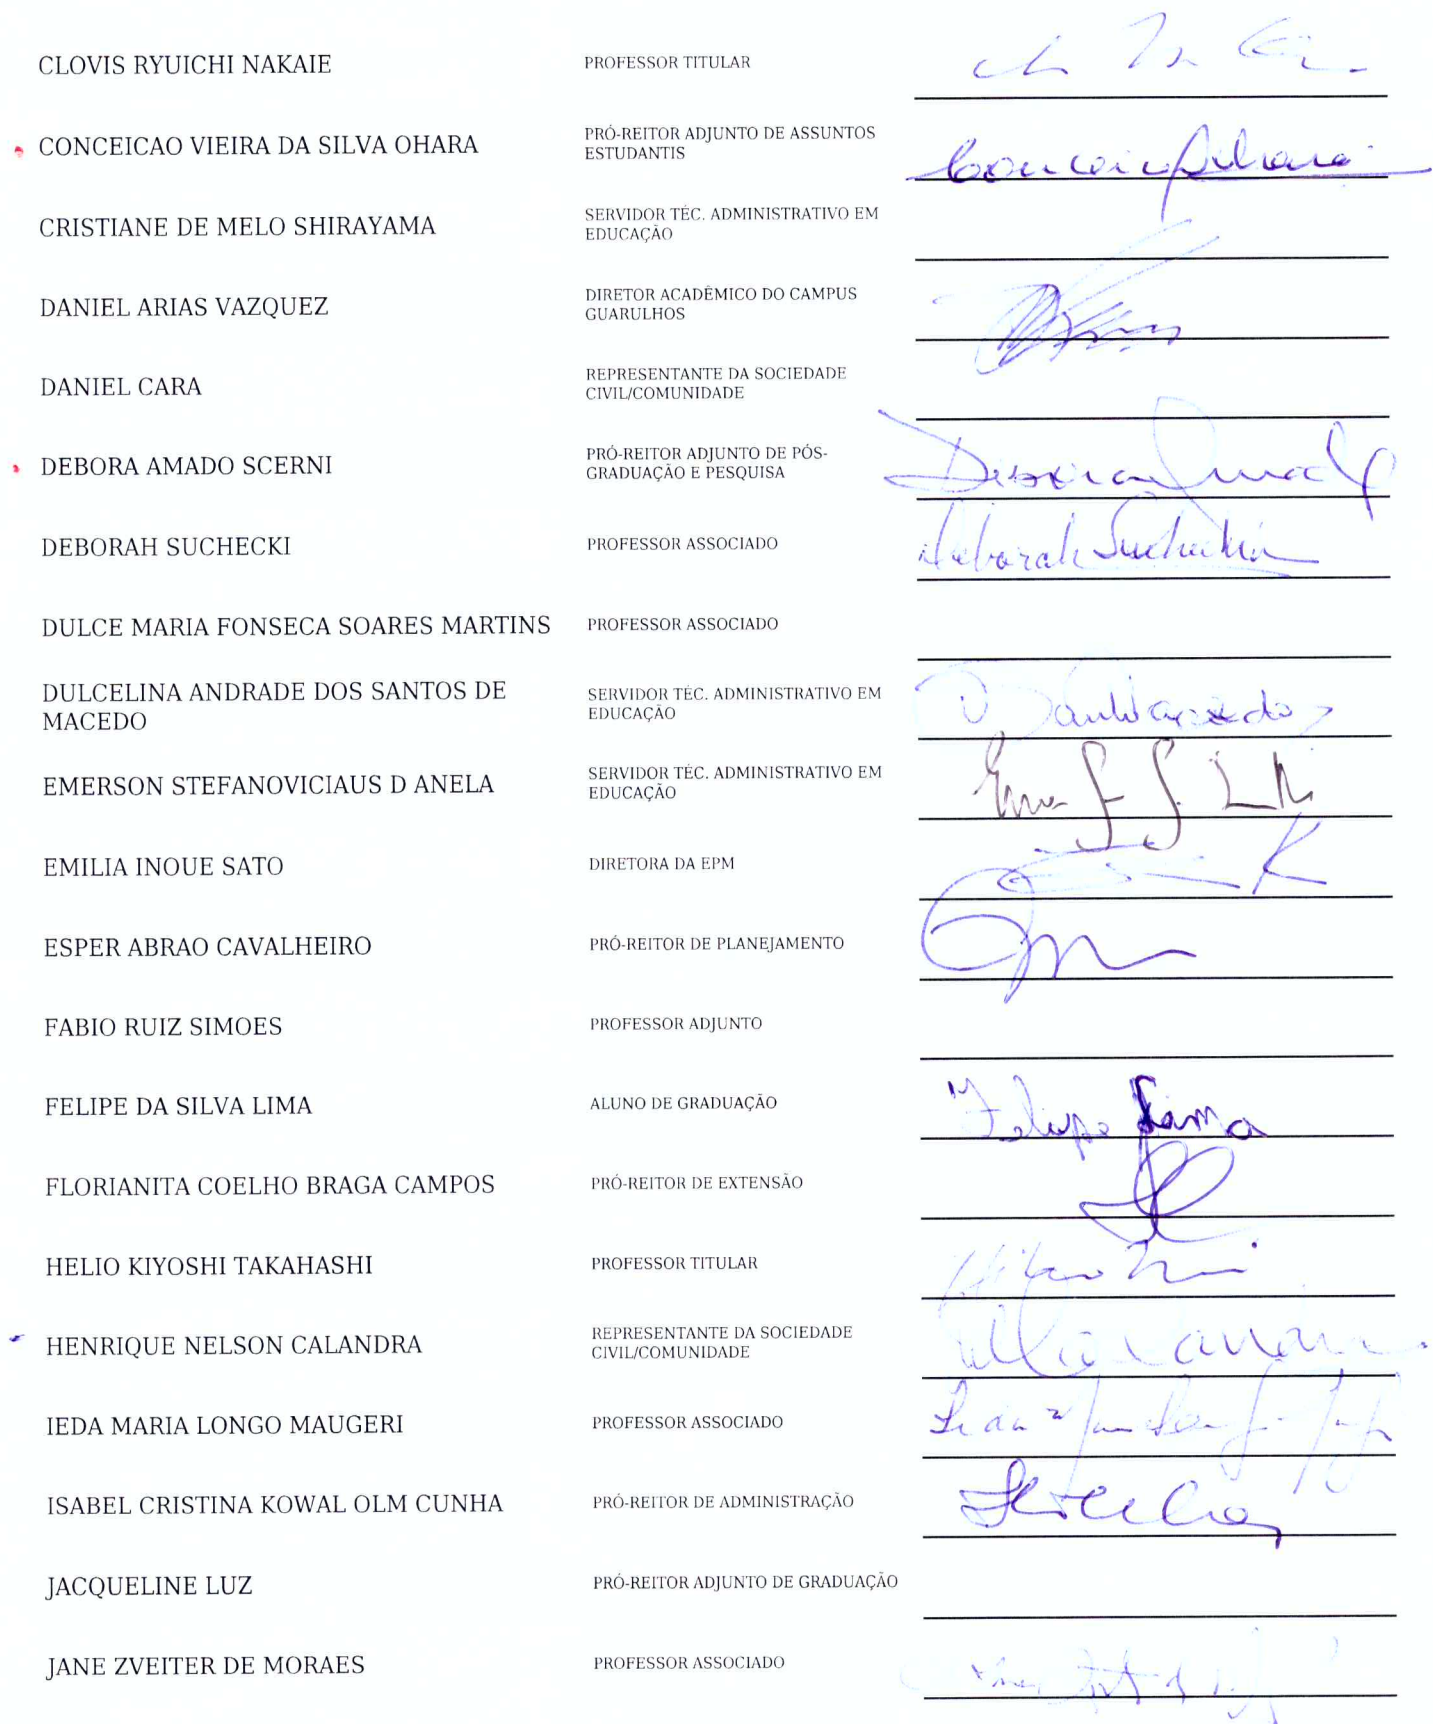 CLOVIS RYUICHI NAKAIE PROFESSOR TITULAR
CONCEICAO VIEIRA DA SILVA OHARA PRÓ-REITOR ADJUNTO DE ASSUNTOS
ESTUDANTIS
CRISTIANE DE MELO SHIRAYAMA SERVIDOR TÉC. ADMINISTRATIVO EM
EDUCAÇÃO
DANIEL ARIAS VAZQUEZ DIRETOR ACADÊMICO DO CAMPUS
GUARULHOS
DANIEL CARA REPRESENTANTE DA SOCIEDADE
CIVIL/COMUNIDADE
DEBORA AMADO SCERNI PRÓ-REITOR ADJUNTO DE PÓS-
GRADUAÇÃO E PESQUISA
DEBORAH SUCHECKI PROFESSOR ASSOCIADO Deborah Suchecki
DULCE MARIA FONSECA SOARES MARTINS PROFESSOR ASSOCIADO
DULCELINA ANDRADE DOS SANTOS DE SERVIDOR TÉC. ADMINISTRATIVO EM
MACEDO EDUCAÇÃO
EMERSON STEFANOVICIAUS D ANELA SERVIDOR TÉC. ADMINISTRATIVO EM
EDUCAÇÃO
EMILIA INOUE SATO DIRETORA DA EPM
ESPER ABRAO CAVALHEIRO PRÓ-REITOR DE PLANEJAMENTO
FABIO RUIZ SIMOES PROFESSOR ADJUNTO
FELIPE DA SILVA LIMA ALUNO DE GRADUAÇÃO Felipe Lima
FLORIANITA COELHO BRAGA CAMPOS PRÓ-REITOR DE EXTENSÃO
HELIO KIYOSHI TAKAHASHI PROFESSOR TITULAR
HENRIQUE NELSON CALANDRA REPRESENTANTE DA SOCIEDADE
CIVIL/COMUNIDADE
IEDA MARIA LONGO MAUGERI PROFESSOR ASSOCIADO
ISABEL CRISTINA KOWAL OLM CUNHA PRÓ-REITOR DE ADMINISTRAÇÃO
JACQUELINE LUZ PRÓ-REITOR ADJUNTO DE GRADUAÇÃO
JANE ZVEITER DE MORAES PROFESSOR ASSOCIADO